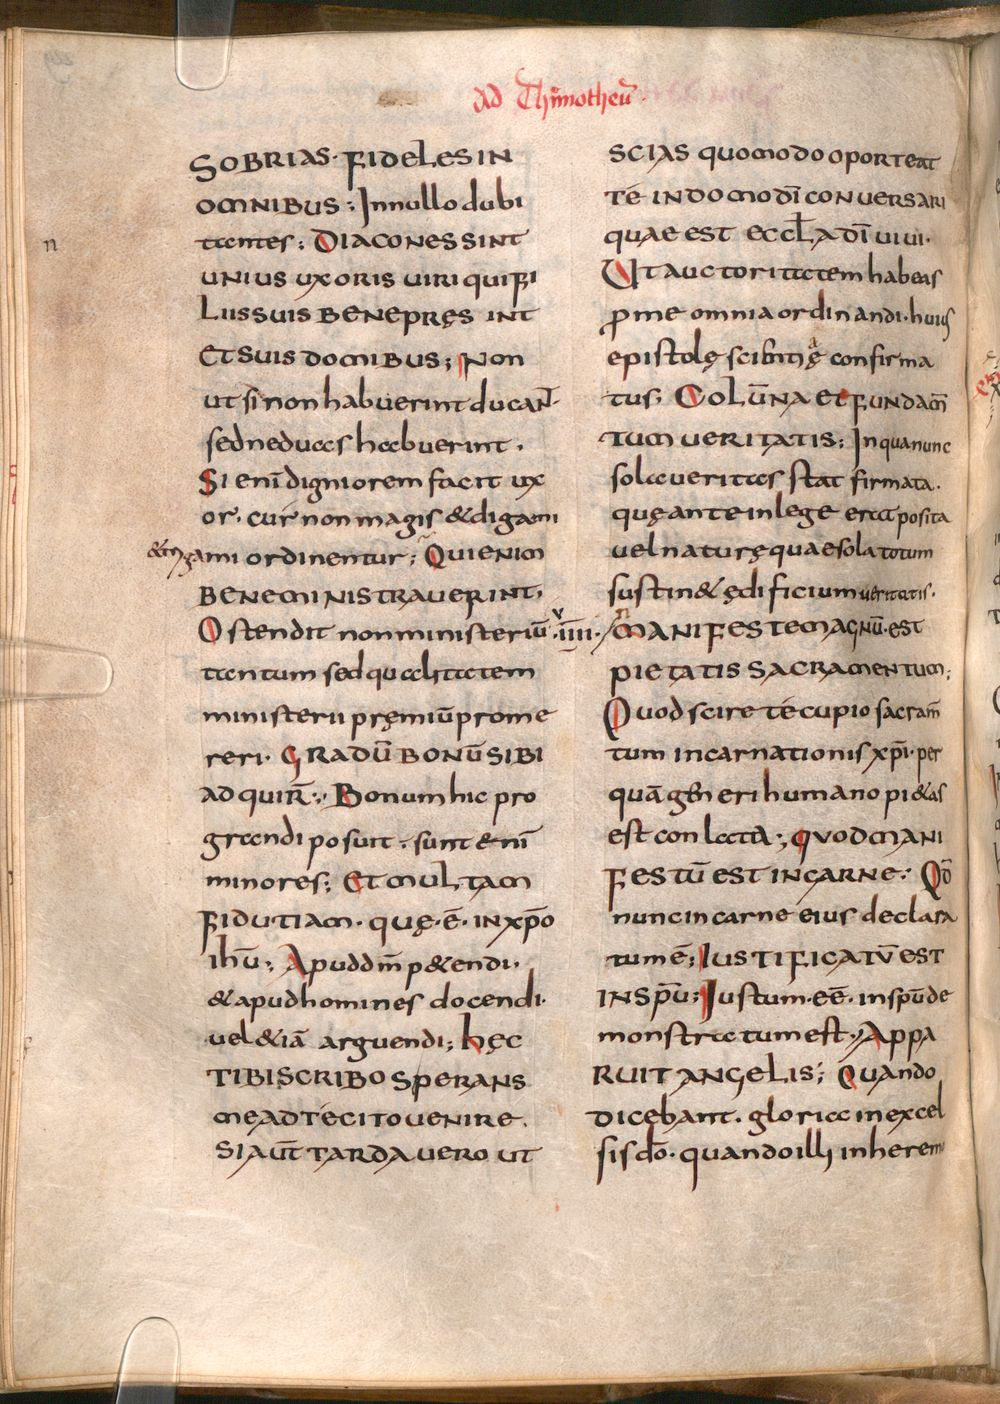 Ad Thimotheū·
SOBRIAS· FIDELES IN
OMNIBUS; In nullo dubi
tantes; DIACONES SINT
UNIUS UXORIS VIRI QUI FI
LIIS SUIS BENE PRĘS INT
ET SUIS DOMIBUS; Non
ut si non habuerint ducant
sed ne duas habuerint.
Si enī digniorem facit ux
or· cur non magis & digami
& mgami ordinentur; QUI ENIM
BENE MINISTRAVERINT·
Ostendit non ministeriū
tantum sed qualitatem
ministerii pręmiū prome
reri· GRADŪ BONŪ SIBI
ADQUIR̄; Bonum hic pro
grandi posuit· sunt & enī
minores; ET MULTAM
FIDUTIAM· QUĘ·Ē· IN XP̄O
IHŪ; Apud dm̄ p&endi·
& apud homines docendi·
vel &iā arguendi; HĘC
TIBI SCRIBO SPERANS
ME AD TÉ CITO VENIRE.
SI AUT̄ TARDAVERO UT
SCIAS QUOMODO OPORTEAT
TÉ IN DOMO DĪ CONVERSARI
QUAE EST ECCLA DĪ VIVI·
Ut auctoritatem habeas
p me omnia ordinandi· huius
epistolę scibtię confirma
tus; COLŪNA ET FUNDAM̄
TUM VERITATIS; In qua nunc
sola veritas stat firmata.
quę ante in lege erat posita
vel naturę quae sola totum
sustin& ędificium veritatis·
·iiii· MANIFESTE MAGNŪ·EST
PIETATIS SACRAMENTUM;
Quod scire té cupio sacram̄
tum incarnationis xp̄i· per
quā gen̄eri humano pi&as
est conlata; QUOD MANI
FESTŪ EST IN CARNE; Qd̄
nunc in carne eius declara
tum ē; IUSTIFICATŪ EST
IN SPŪ; Iustum·eē· in spū de
monstratum est· APPA
RUIT ANGELIS; Quando
dicebant· gloria in excel
sis dō· quando illi inherem
n